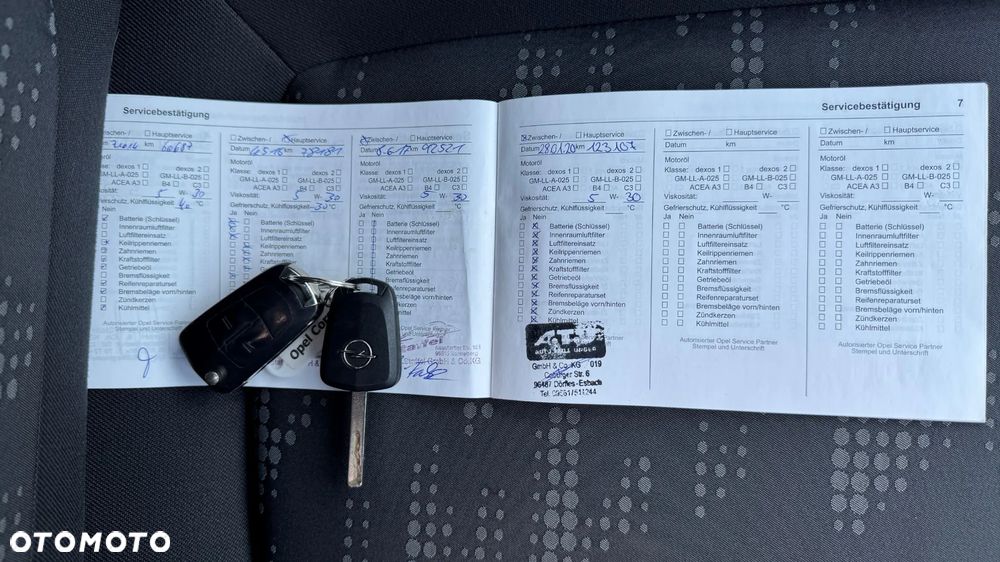 Servicebestätigung
Zwischen-/ Hauptservice
km 60687
Motoröl
Klasse: dexos 1 dexos 2
GM-LL-A-025 GM-LL-B-025
ACEA A3 B4 C3
Viskosität: 5 W- 30
Gefrierschutz, Kühlflüssigkeit °C
Nein
Batterie (Schlüssel)
Innenraumluftfilter
Luftfiltereinsatz
Keilrippenriemen
Zahnriemen
Kraftstofffilter
Getriebeöl
Bremsflüssigkeit
Reifenreparaturset
Bremsbeläge vorn/hinten
Zündkerzen
Kühlmittel
Autorisierter Opel Service Partner
Stempel und Unterschrift
Zwischen-/ Hauptservice
Datum km
Motoröl
Klasse: dexos 1 dexos 2
GM-LL-A-025 GM-LL-B-025
ACEA A3 B4 C3
Viskosität: 5 W- 30
Gefrierschutz, Kühlflüssigkeit -30 °C
Ja Nein
Batterie (Schlüssel)
Innenraumluftfilter
Luftfiltereinsatz
Keilrippenriemen
Zahnriemen
Kraftstofffilter
Opel
Zwischen-/ Hauptservice
Datum km 92521
Motoröl
Klasse: dexos 1 dexos 2
GM-LL-A-025 GM-LL-B-025
ACEA A3 B4 C3
Viskosität: 5 W- 30
Gefrierschutz, Kühlflüssigkeit °C
Ja Nein
Batterie (Schlüssel)
Innenraumluftfilter
Luftfiltereinsatz
Keilrippenriemen
Zahnriemen
Kraftstofffilter
Getriebeöl
Bremsflüssigkeit
Reifenreparaturset
Bremsbeläge vorn/hinten
Zündkerzen
Kühlmittel
GmbH & Co.KG
Servicebestätigung 7
Zwischen-/ Hauptservice
Datum 28.01.20 km 123.107
Motoröl
Klasse: dexos 1 dexos 2
GM-LL-A-025 GM-LL-B-025
ACEA A3 B4 C3
Viskosität: 5 W- 30
Gefrierschutz, Kühlflüssigkeit °C
Ja Nein
Batterie (Schlüssel)
Innenraumluftfilter
Luftfiltereinsatz
Keilrippenriemen
Zahnriemen
Kraftstofffilter
Getriebeöl
Bremsflüssigkeit
Reifenreparaturset
Bremsbeläge vorn/hinten
Zündkerzen
Kühlmittel
GmbH & Co. KG 019
Coburger Str. 6
96487 Dörfles-Esbach
Zwischen-/ Hauptservice
Datum km
Motoröl
Klasse: dexos 1 dexos 2
GM-LL-A-025 GM-LL-B-025
ACEA A3 B4 C3
Viskosität: W-
Gefrierschutz, Kühlflüssigkeit °C
Ja Nein
Batterie (Schlüssel)
Innenraumluftfilter
Luftfiltereinsatz
Keilrippenriemen
Zahnriemen
Kraftstofffilter
Getriebeöl
Bremsflüssigkeit
Reifenreparaturset
Bremsbeläge vorn/hinten
Zündkerzen
Kühlmittel
Autorisierter Opel Service Partner
Stempel und Unterschrift
Zwischen-/ Hauptservice
Datum km
Motoröl
Klasse: dexos 1 dexos 2
GM-LL-A-025 GM-LL-B-025
ACEA A3 B4 C3
Viskosität: W-
Gefrierschutz, Kühlflüssigkeit °C
Ja Nein
Batterie (Schlüssel)
Innenraumluftfilter
Luftfiltereinsatz
Keilrippenriemen
Zahnriemen
Kraftstofffilter
Getriebeöl
Bremsflüssigkeit
Reifenreparaturset
Bremsbeläge vorn/hinten
Zündkerzen
Kühlmittel
Autorisierter Opel Service Partner
Stempel und Unterschrift
OTOMOTO